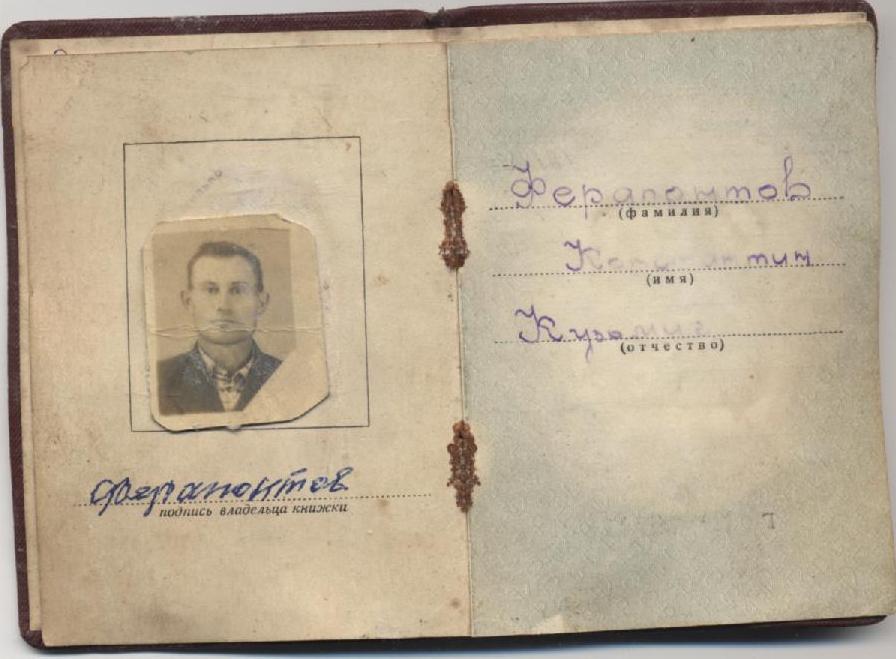 Ферапонтов
подпись владельца книжки
Ферапонтов
(фамилия)
Константин
(имя)
(отчество)